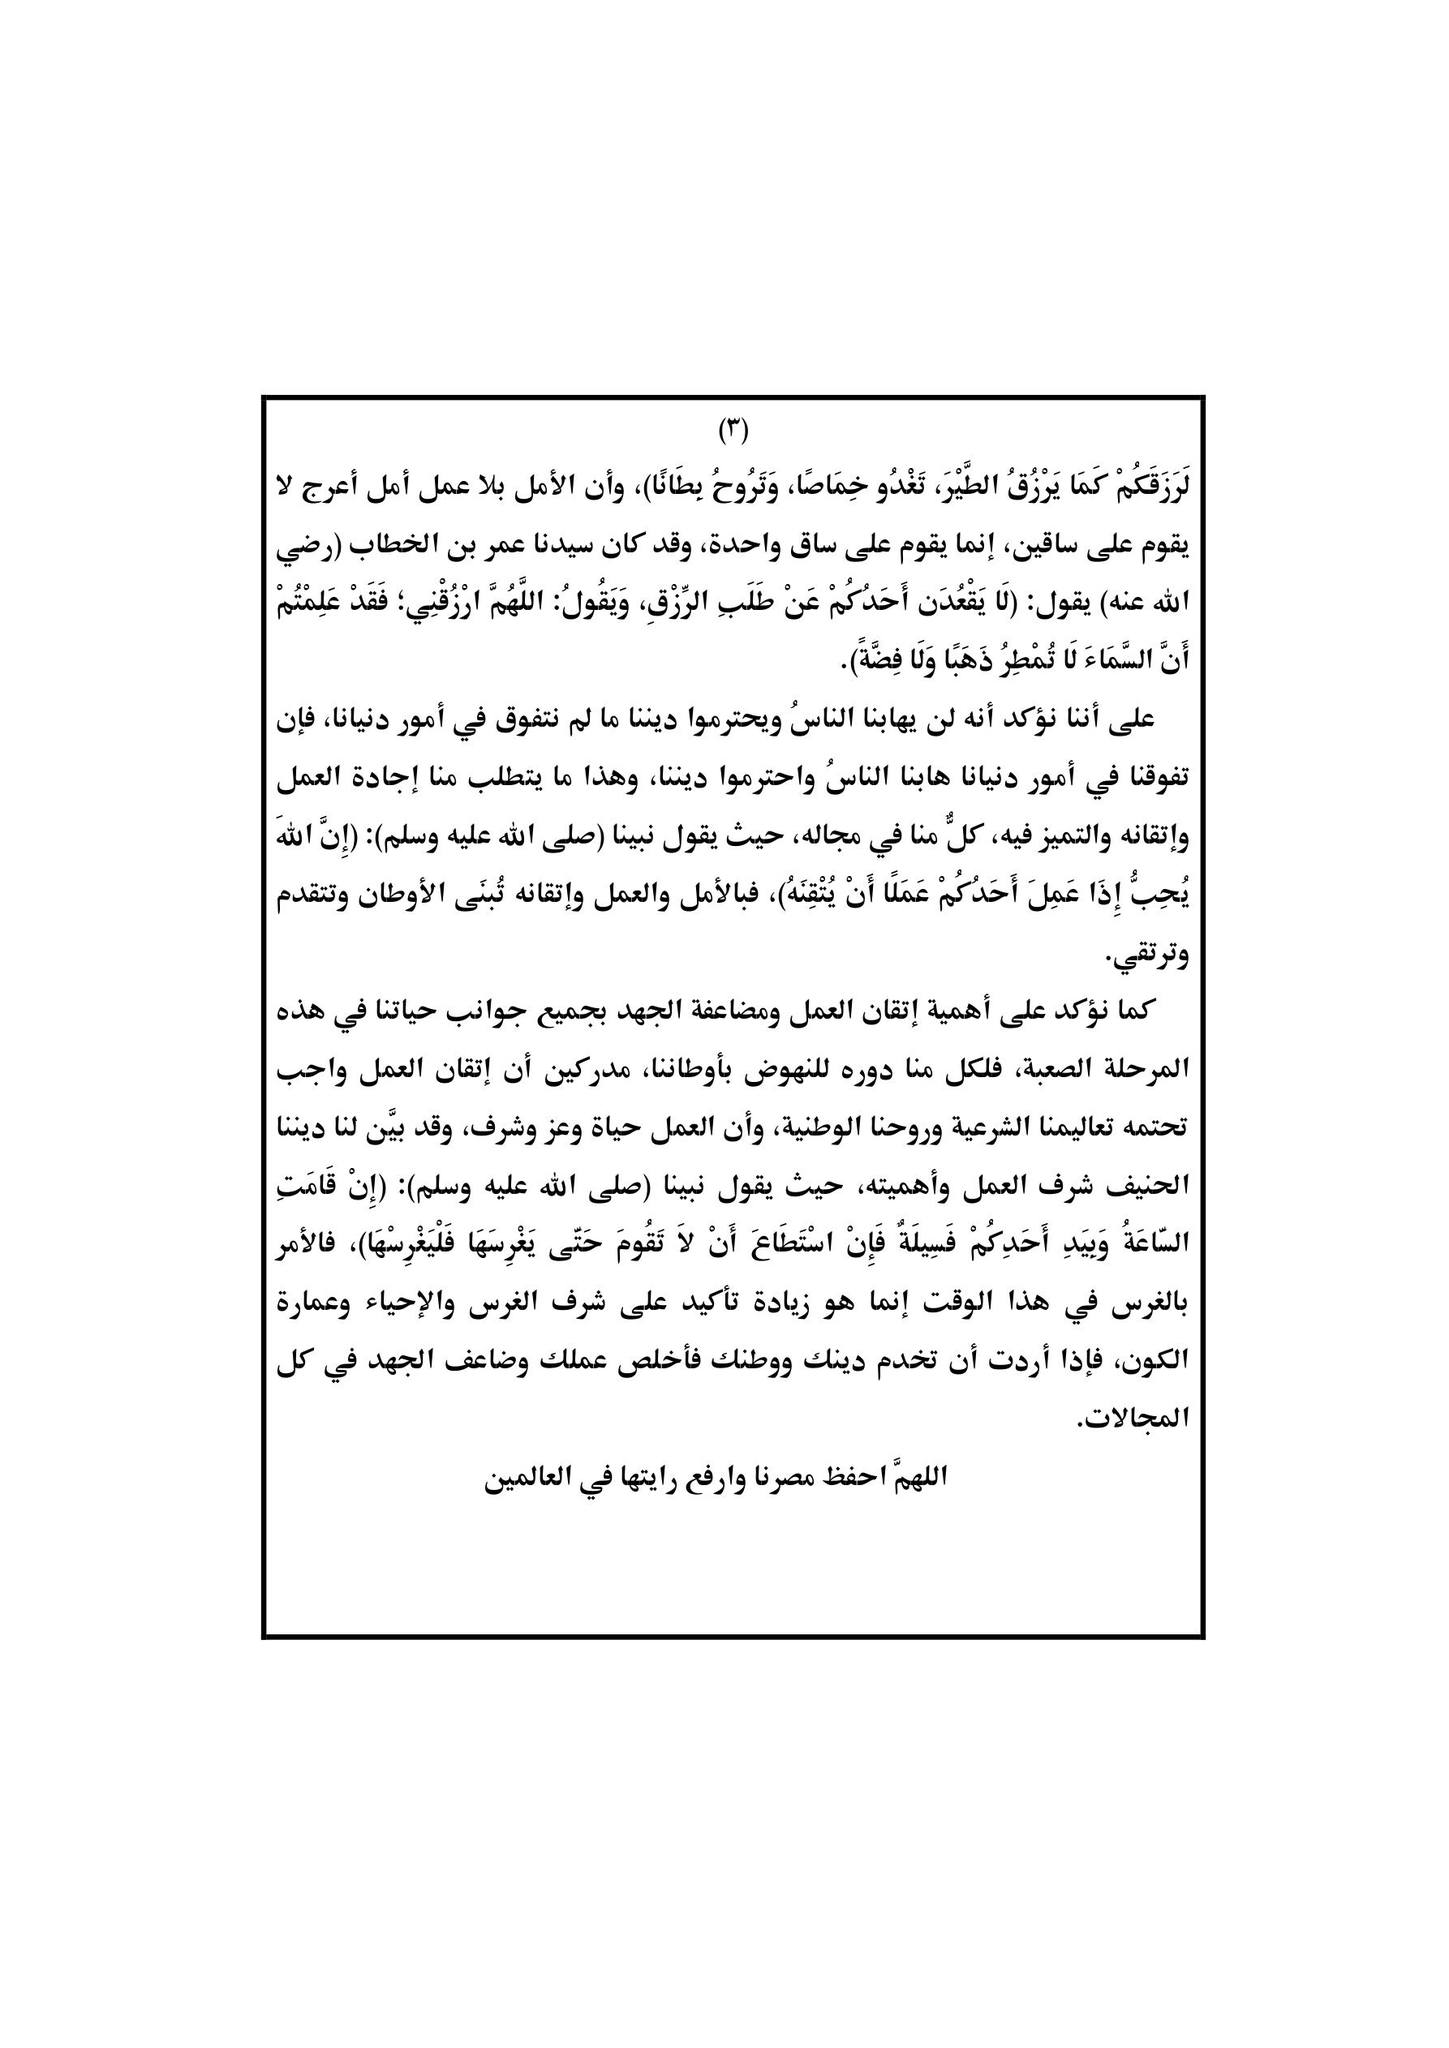 (٣)
لَرَزَقَكُمْ كَمَا يَرْزُقُ الطَّيْرَ، تَغْدُو خِمَاصًا، وَتَرُوحُ بِطَانًا)، وأن الأمل بلا عمل أمل أعرج لا
يقوم على ساقين، إنما يقوم على ساق واحدة، وقد كان سيدنا عمر بن الخطاب (رضي
الله عنه) يقول: (لَا يَقْعُدَن أَحَدُكُمْ عَنْ طَلَبِ الرِّزْقِ، وَيَقُولُ: اللَّهُمَّ ارْزُقْنِي؛ فَقَدْ عَلِمْتُمْ
أَنَّ السَّمَاءَ لَا تُمْطِرُ ذَهَبًا وَلَا فِضَّةً).
على أننا نؤكد أنه لن يهابنا الناسُ ويحترموا ديننا ما لم نتفوق في أمور دنيانا، فإن
تفوقنا في أمور دنيانا هابنا الناسُ واحترموا ديننا، وهذا ما يتطلب منا إجادة العمل
وإتقانه والتميز فيه، كلٌّ منا في مجاله، حيث يقول نبينا (صلى الله عليه وسلم): (إِنَّ اللهَ
يُحِبُّ إِذَا عَمِلَ أَحَدُكُمْ عَمَلًا أَنْ يُتْقِنَهُ)، فبالأمل والعمل وإتقانه تُبنَى الأوطان وتتقدم
وترتقي.
كما نؤكد على أهمية إتقان العمل ومضاعفة الجهد بجميع جوانب حياتنا في هذه
المرحلة الصعبة، فلكل منا دوره للنهوض بأوطاننا، مدركين أن إتقان العمل واجب
تحتمه تعاليمنا الشرعية وروحنا الوطنية، وأن العمل حياة وعز وشرف، وقد بيَّن لنا ديننا
الحنيف شرف العمل وأهميته، حيث يقول نبينا (صلى الله عليه وسلم): (إِنْ قَامَتِ
السّاعَةُ وَبِيَدِ أَحَدِكُمْ فَسِيلَةٌ فَإِنْ اسْتَطَاعَ أَنْ لاَ تَقُومَ حَتّى يَغْرِسَهَا فَلْيَغْرِسْهَا)، فالأمر
بالغرس في هذا الوقت إنما هو زيادة تأكيد على شرف الغرس والإحياء وعمارة
الكون، فإذا أردت أن تخدم دينك ووطنك فأخلص عملك وضاعف الجهد في كل
المجالات.
اللهمَّ احفظ مصرنا وارفع رايتها في العالمين